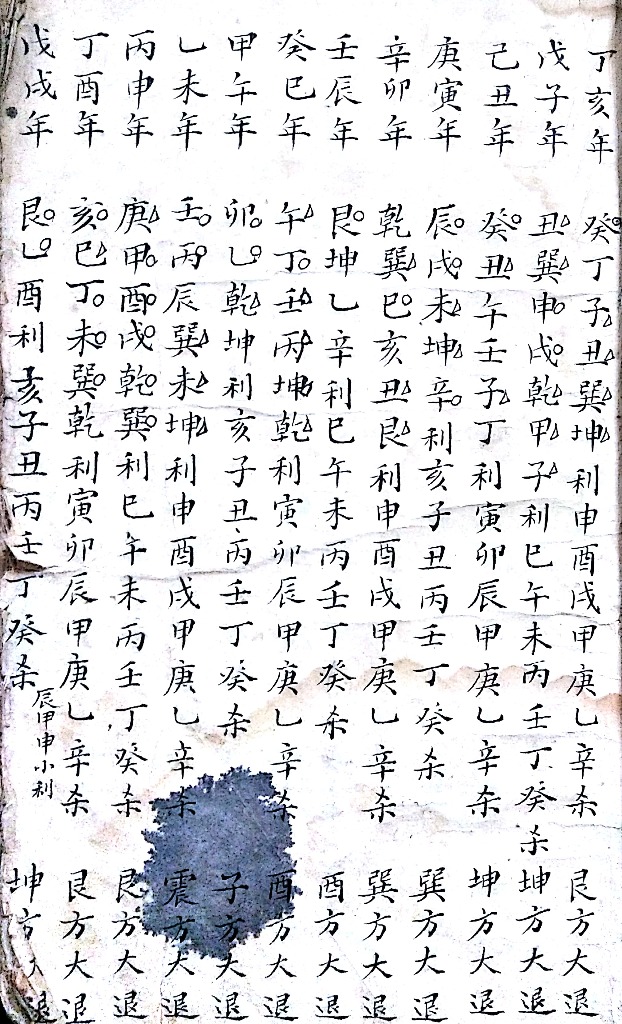 丁亥年 癸丁子丑巽坤利申酉戌甲庚乚辛杀 艮方大退
戊子年 丑巽申戌乾甲子利巳午未丙壬丁癸杀 坤方大退
己丑年 癸丑午壬子丁利寅卯辰甲庚乚辛杀 坤方大退
庚寅年 辰戌未坤辛利亥子丑丙壬丁癸杀 巽方大退
辛卯年 乾巽巳亥丑艮利申酉戌甲庚乚辛杀 巽方大退
壬辰年 艮坤乚辛利巳午未丙壬丁癸杀 酉方大退
癸巳年 午丁壬丙坤乾利寅卯辰甲庚乚辛杀 酉方大退
甲午年 卯乚乾坤利亥子丑丙壬丁癸杀 子方大退
乚未年 壬丙辰巽未坤利申酉戌甲庚乚辛杀 震方大退
丙申年 庚甲酉戌乾巽利巳午未丙壬丁癸杀 艮方大退
丁酉年 亥巳丁未巽乾利寅卯辰甲庚乚辛杀 艮方大退
戊戌年 艮乚酉利亥子丑丙壬丁癸杀 坤方大退
辰甲申小利